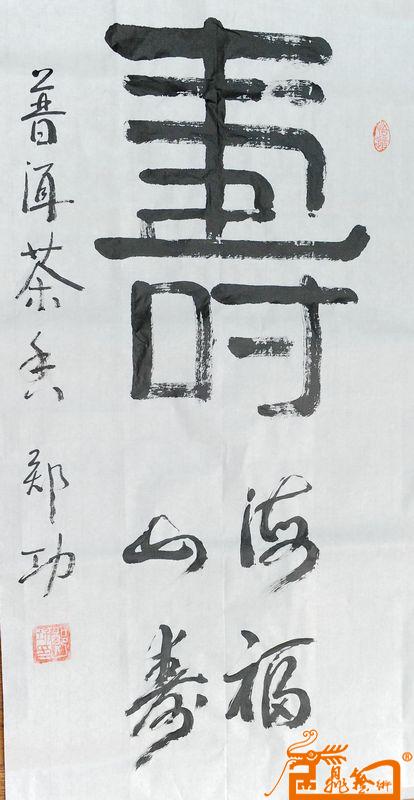 壽
海福
山寿
普洱茶香 郑功